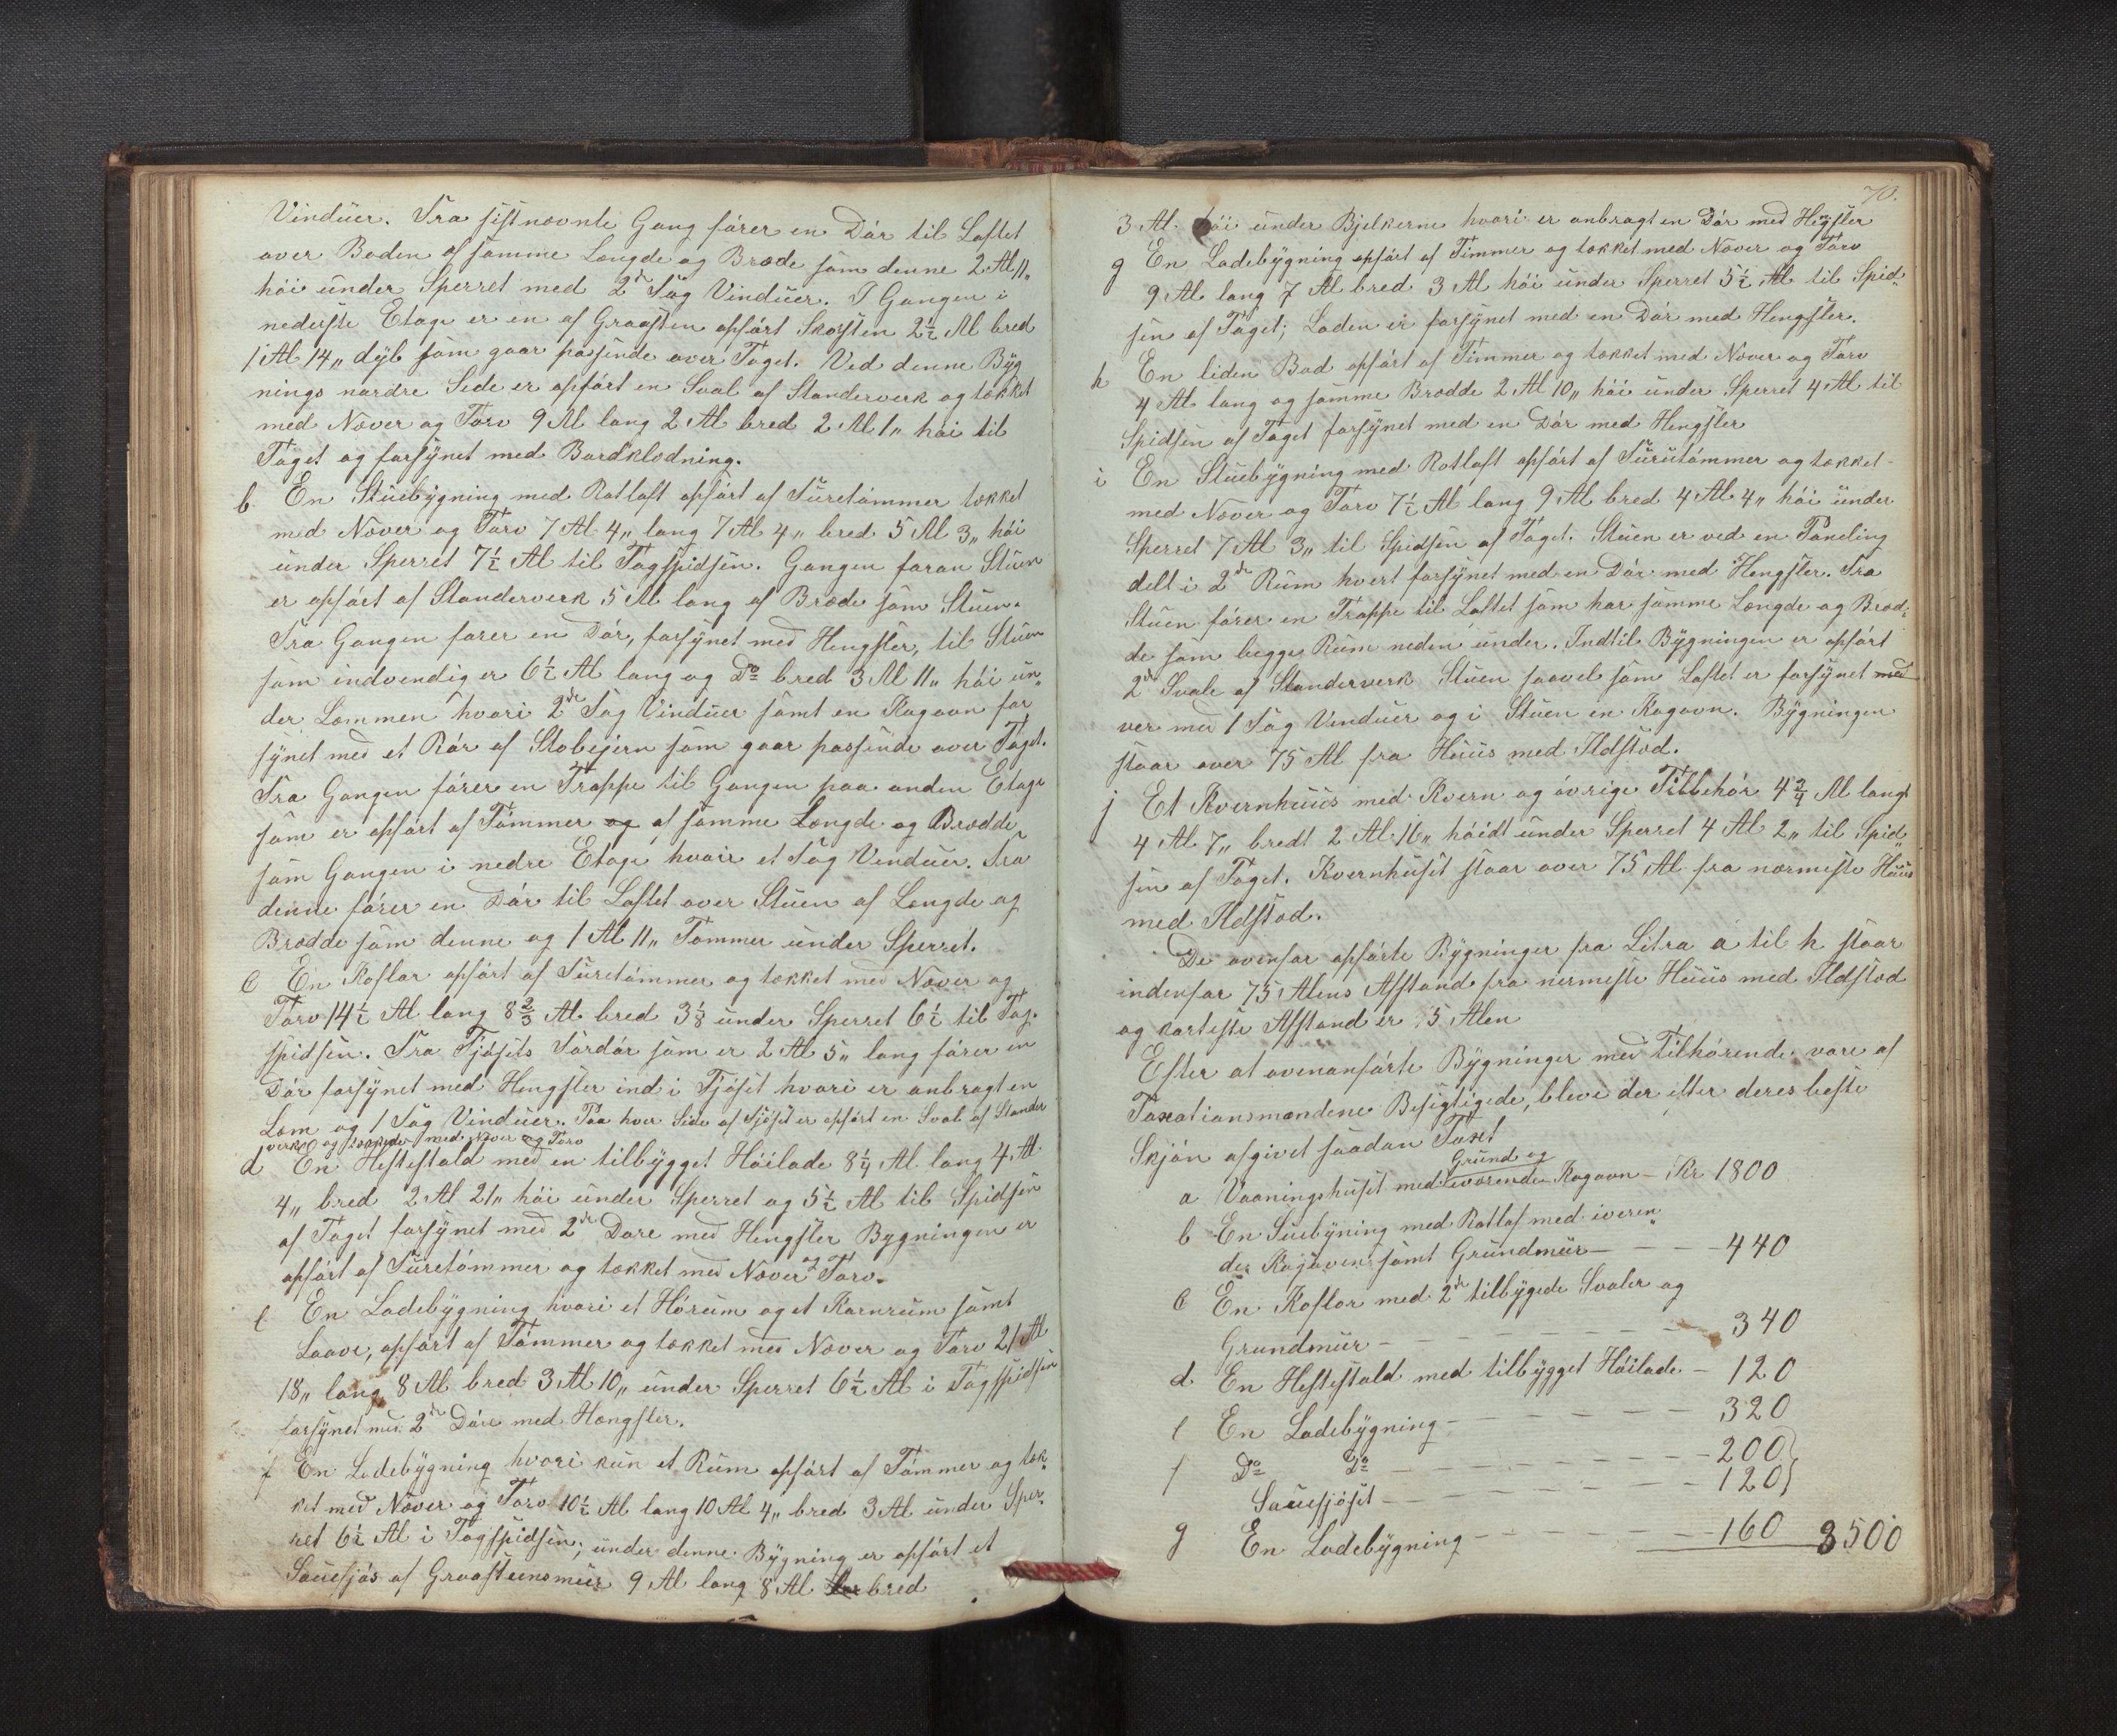 Vinduer. Fra sistnævnte Gang fører en Dør til Loftet
over Boden af samme Længde og Brede som denne 2 Al 11„
høi under Sperret med 2de Fag Vinduer. I Gangen i
nederste Etage er en af Graasten opført Skorsten 2½ Al bred
1 Al 14„ dyb som gaar passende over Taget. Ved denne Byg
nings nordre Side er opført en Sval af Standerverk og tækket
med Næver og Torv 9 Al lang 2 Al bred 2 Al 1„ høi til
Taget og forsynet med Bordklædning.
b. En Stuebygning med Rotloft opført af Furetømmer tækket
med Næver og Torv 7 Al 4„ lang 7 Al 4„ bred 5 Al 3„ høi
under Sperret 7½ Al til Tagspidsen. Gangen foran Stuen
er opført af Standerverk 5 Al lang af Brede som Stuen.
Fra Gangen fører en Dør, forsynet med Hengsler, til Stuen
som indvendig er 6½ Al lang og Do bred 3 Al 11„ høi un„
der Lemmen hvori 2de Fag Vinduer samt en Kagovn for
synet med et Rør af Støbejern som gaar passende over Taget.
Fra Gangen fører en Trappe til Gangen paa anden Etage
som er opført af Tømmer og af samme Længde og Bredde
som Gangen i nedre Etage hvori et Fag Vinduer. Fra
denne fører en Dør til Loftet over Stuen af Længde og
Bredde som denne og 1 Al 11„ Tommer under Sperret.
c En Koflor opført af Furetømmer og tækket med Næver og
Torv 14½ Al lang 8⅔ Al bred 3⅛ under Sperret 6½ til Tag.
spidsen. Fra Fjøsets Fordør som er 2 Al 5„ lang fører en
Dør forsynet med Hengsler ind i Fjøset hvori er anbragt en
Lem og 1 Fag Vinduer. Paa hver Side af Fjøset er opført en Sval af Stander
verk og tækkede med Næver og Torv
d En Hestestald med en tilbygget Høilade 8¼ Al lang 4 Al
4„ bred 2 Al 21„ høi under Sperret og 5½ Al til Spidsen
af Taget forsynet med 2de Døre med Hengsler Bygningen er
opført af Furetømmer og tækket med Næver og Torv.
e En Ladebygning hvori et Hørum og et Kornrum samt
Laave, opført af Tømmer og tækket med Næver og Torv 21 Al
18„ lang 8 Al bred 3 Al 10„ under Sperret 6½ Al i Tagspidsen
forsynet med 2de Døre med Hængsler.
f En Ladebygning hvori kun et Rum opført af Tømmer og tæk„
ket med Næver og Torv 10½ Al lang 10 Al 4„ bred 3 Al under Sper„
ret 6½ Al i Tagspidsen; under denne Bygning er opført et
Sauefjøs af Graasteensmur 9 Al lang 8 Al bred
70.
3 Al. høi under Bjelkerne hvori er anbragt en Dør med Hengsler
g En Ladebygning opført af Timmer og tækket med Næver og Torv
9 Al lang 7 Al bred 3 Al høi under Sperret 5½ Al til Spid„
sen af Taget; Laden er forsynet med en Dør med Hengsler.
h En liden Bod opført af Timmer og tækket med Næver og Torv
4 Al lang og samme Brædde 2 Al 10„ høi under Sperret 4 Al til
Spidsen af Taget forsynet med en Dør med Hengsler
i En Stuebygning med Rotloft opført af Furutømmer og tækket
med Næver og Torv 7½ Al lang 9 Al bred 4 Al 4„ høi under
Sperret 7 Al 3„ til Spidsen af Taget. Stuen er ved en Paneling
delt i 2de Rum hvert forsynet med en Dør med Hengsler. Fra
Stuen fører en Trappe til Loftet som har samme Længde og Bred„
de som begge Rum neden under. Indtil Bygningen er opført
2de Svale af Standerverk Stuen saavel som Loftet er forsynet med
ver med 1 Fag Venduer og i Stuen en Kagovn. Bygningen
staar over 75 Al fra Huus med Ildsted.
j Et Kvernhuus med Kvern og øvrige Tilbehør 4¾ Al langt
4 Al 7„ bredt 2 Al 16„ høidt under Sperret 4 Al 2„ til Spid„
sen af Taget. Kvernhuset staar over 75 Al fra nærmeste Huus
med Ildsted.
De ovenfor opførte Bygninger fra Litra a til h staar
indenfor 75 Alens Afstand fra nermeste Huus med Ildsted
og korteste Afstand er 5 Alen
Efter at ovenanførte Bygninger med Tilhørende vare af
Taxationsmændene Besigtigede, bleve der efter deres beste
Skjøn afgivet saadan Taxt
Grund og
a Vaaningshuset med iværende Kagovn – Kr 1800
b En Suebyning med Rotlof med iveren„
de Kagoven samt Grundmur – – – 440
c En Koflor med 2de tilbygede Svaler og
Grundmur – – – – – – 340
d. En Hestestald med tilbygget Høilade – 120
e En Ladebygning – – – – – – 320
f Do Do – – – – – – 200
Sauefjøset – – – – – – 120
g En Ladebygning – – – – – – 160 3500